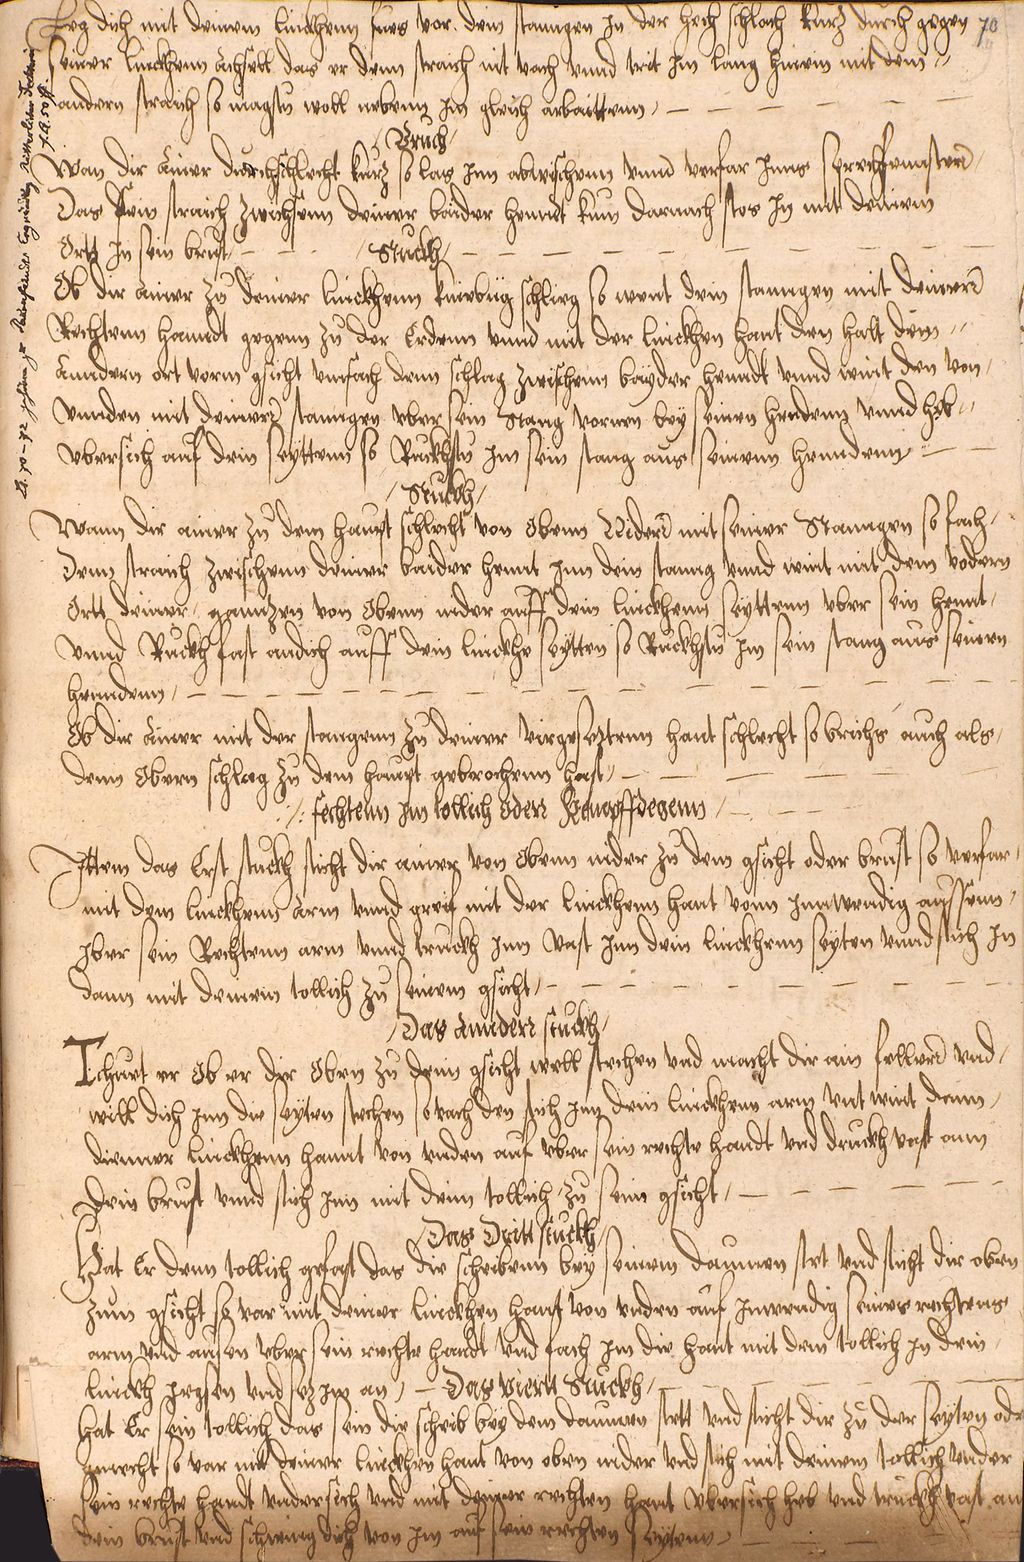 Leg dich mit deinem linckhenn fues vor dein stanngen In der hech schlach kurz durch gegen
seiner linckhenn Achsell das er denn straich nit vach unnd trit Im lang hinein mit dem
andern straich so magstu woll nebenn Im gleich arbaittenn
Bruch
Wan dir Ainer durchschlecht kurz so las Inn abwischenn unnd verfar Inns
Das sein straich zwischenn deiner baider henndt kum darnach stos In mit deinem
Ortt In sein brust Stuckh
Ob dir ainer zu deiner linckhenn kniebüg schlieg so went dein stanngen mit deinerr
Rechtenn hanndt gegenn zu der Erdenn unnd mit der linckhen hant den halt dein
Anndern ort vorm gsicht unnfach denn schlag zwischenn bayder henndt unnd wint den von
unnden mit deinerr stanngen uber sein stang vornen bey seinen hendenn unnd heb
ubersich auf dein seyttenn so Ruckhstu Im sein stang aus seinenn henndenn
Stuckh
Wann dir ainer zu dem haupt schlecht von Obenn Niderr mit seiner Stanngen so fach
Denn straich zwischenn deiner baider hennt Inn dein stanng unnd wint mit dem vodern
Ortt deiner stanngen von Obenn nider auff dein linckhenn seyttenn uber sein hennt
unnd Ruckh fast an dich auff dein linckhe seytten so Ruckhstu Im sein stang aus seinen
henndenn
Ob dir Ainer mit der stangenn zu deiner virgesetztenn hant schlecht so brichs auch als
denn Obern schlag zu dem haupt gebrochenn hast
fechtenn Im tollich oder Kampffdegenn
Ittem das Erst stuckh sticht dir ainer von Obenn nider zu dem gsicht oder brust so verfar
mit dem linckhenn Arm unnd greif mit der linckhenn hant vonn Innwendig aussenn
Iber sein Rechtenn arm unnd truckh Inn vast Inn dein linckhenn seyten unnd stich In
dann mit deinem tollich zu seinem gsicht
Das annder stuckh
Tchuet er Ob er dir Oben zu deim gsicht well stechen und macht dir ain fellerr und
will dich Inn die seyten stechen so vach den stich Inn dein linckhenn arm unt wint dann
deinner linckhenn hannt von unden auf uber sein rechte handt und druckh vast ann
dein brust unnd stich Inn mit deim tollich zu seim gsicht
Das Dritt stuckh
Hat Er denn tollich gefast das die scheibenn bey seinem daumen stet und sticht dir oben
zum gsicht so var mit deiner linckhen hant von unden auf Inwendig seines rechtens
arm und aussen uber sein rechte handt und fach Im die hant mit dem tollich In dein
linckh Iegsen und sez Im an Das viert Stuckh
Hat Er sein tollich das sein die scheib bey dem daumen stett und sticht dir zu der seyten oder
gmecht so var mit deiner linckhen hant von oben nider und stich mit deinem tollich under
sein rechte handt undersich und mit deiner rechten hant ubersich heb und truckh vast an
dein brust und schwing dich von Im auf sein rechten seytenn
70